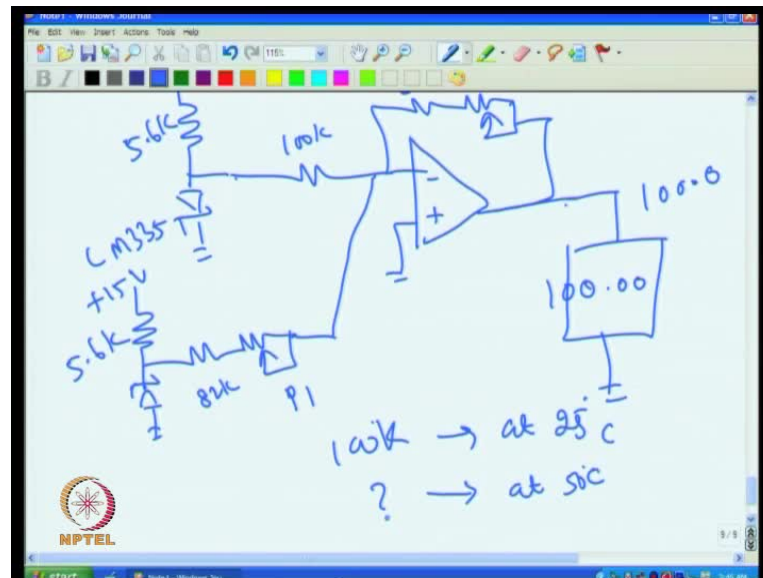 Note1 - Windows Journal
File Edit View Insert Actions Tools Help
115%
B I
5.6K
100k
LM335
+15V
5.6K
82k
P1
-
+
100.0
100.00
100K → at 25°C
? → at 50°C
NPTEL
9/9
start
Note1 - Windows Jou